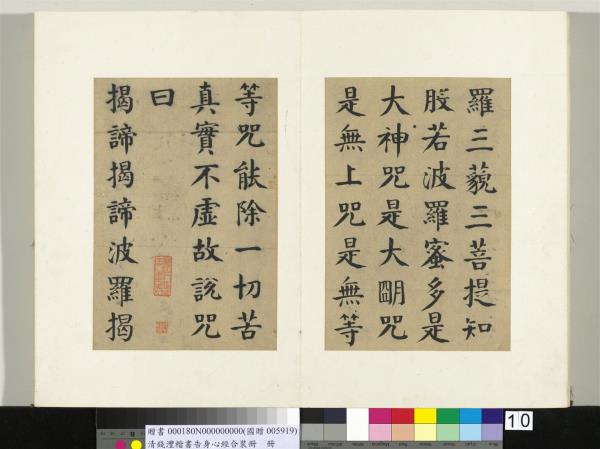 羅三藐三菩提知
般若波羅蜜多是
大神咒是大明咒
是無上咒是無等
等咒能除一切苦
真實不虛故說咒
曰
揭諦揭諦波羅揭
10
贈書 000180N000000000(國贈 005919)
清錢灃楷書告身心經合裝冊 冊